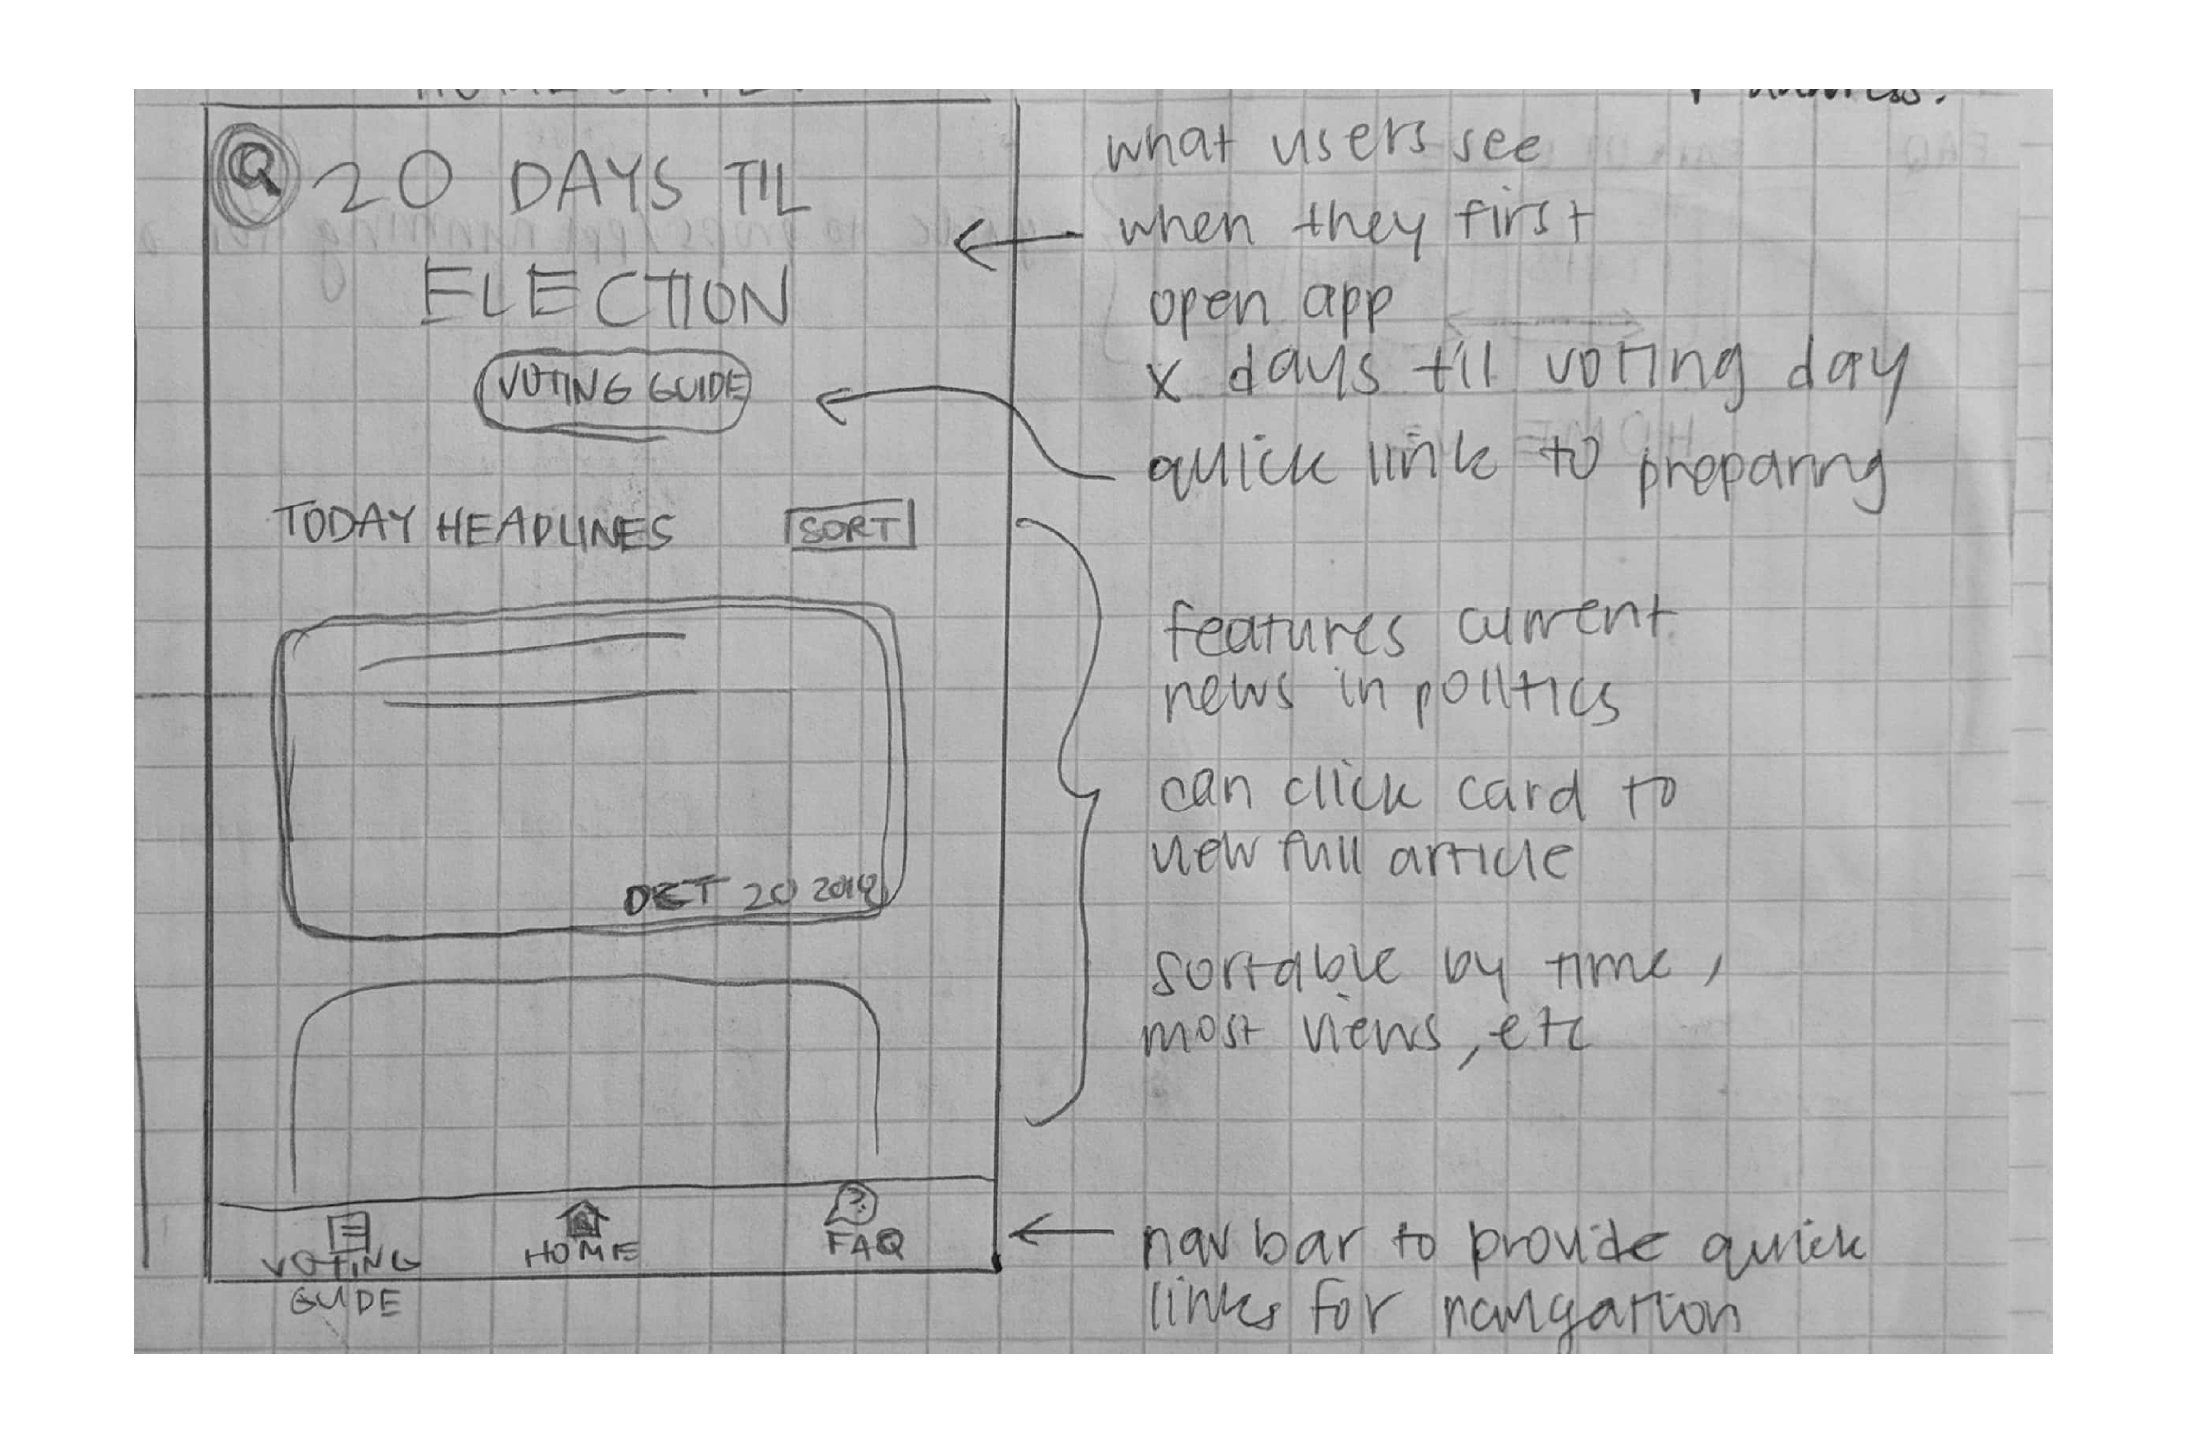 address.
20 DAYS TIL
ELECTION
VOTING GUIDE
TODAY HEADLINES
SORT
OCT 20
VOTING
GUIDE
HOME
?
FAQ
what users see
when they first
open app
x days til voting day
quick link to preparing
features current
news in politics
can click card to
view full article
sortable by time,
most views, etc
nav bar to provide quick
links for navigation